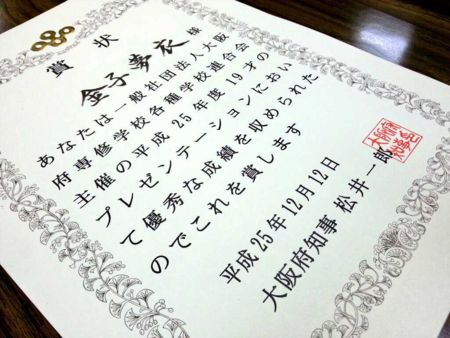 賞状
金子夢衣 様
あなたは一般社団法人大阪
府専修学校各種学校連合会
主催の平成25年度19才の
プレゼンテーションにおい
て優秀な成績を収められた
のでこれを賞します
平成25年12月12日
大阪府知事 松井一郎